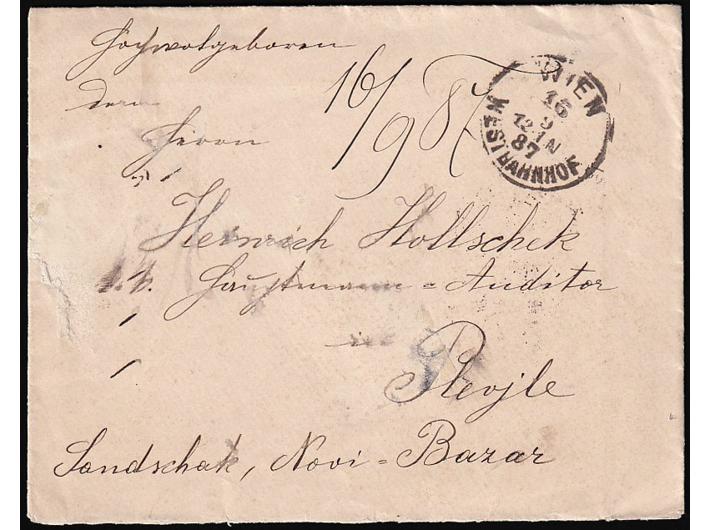 Hochwolgeboren
dem
Herrn
16/9 87
WIEN
16
9
12-1N
87
WESTBAHNHOF
Heinrich Hollschek
k.k. Hauptmann = Auditor
in
Plevjle
Sandschak, Novi = Bazar